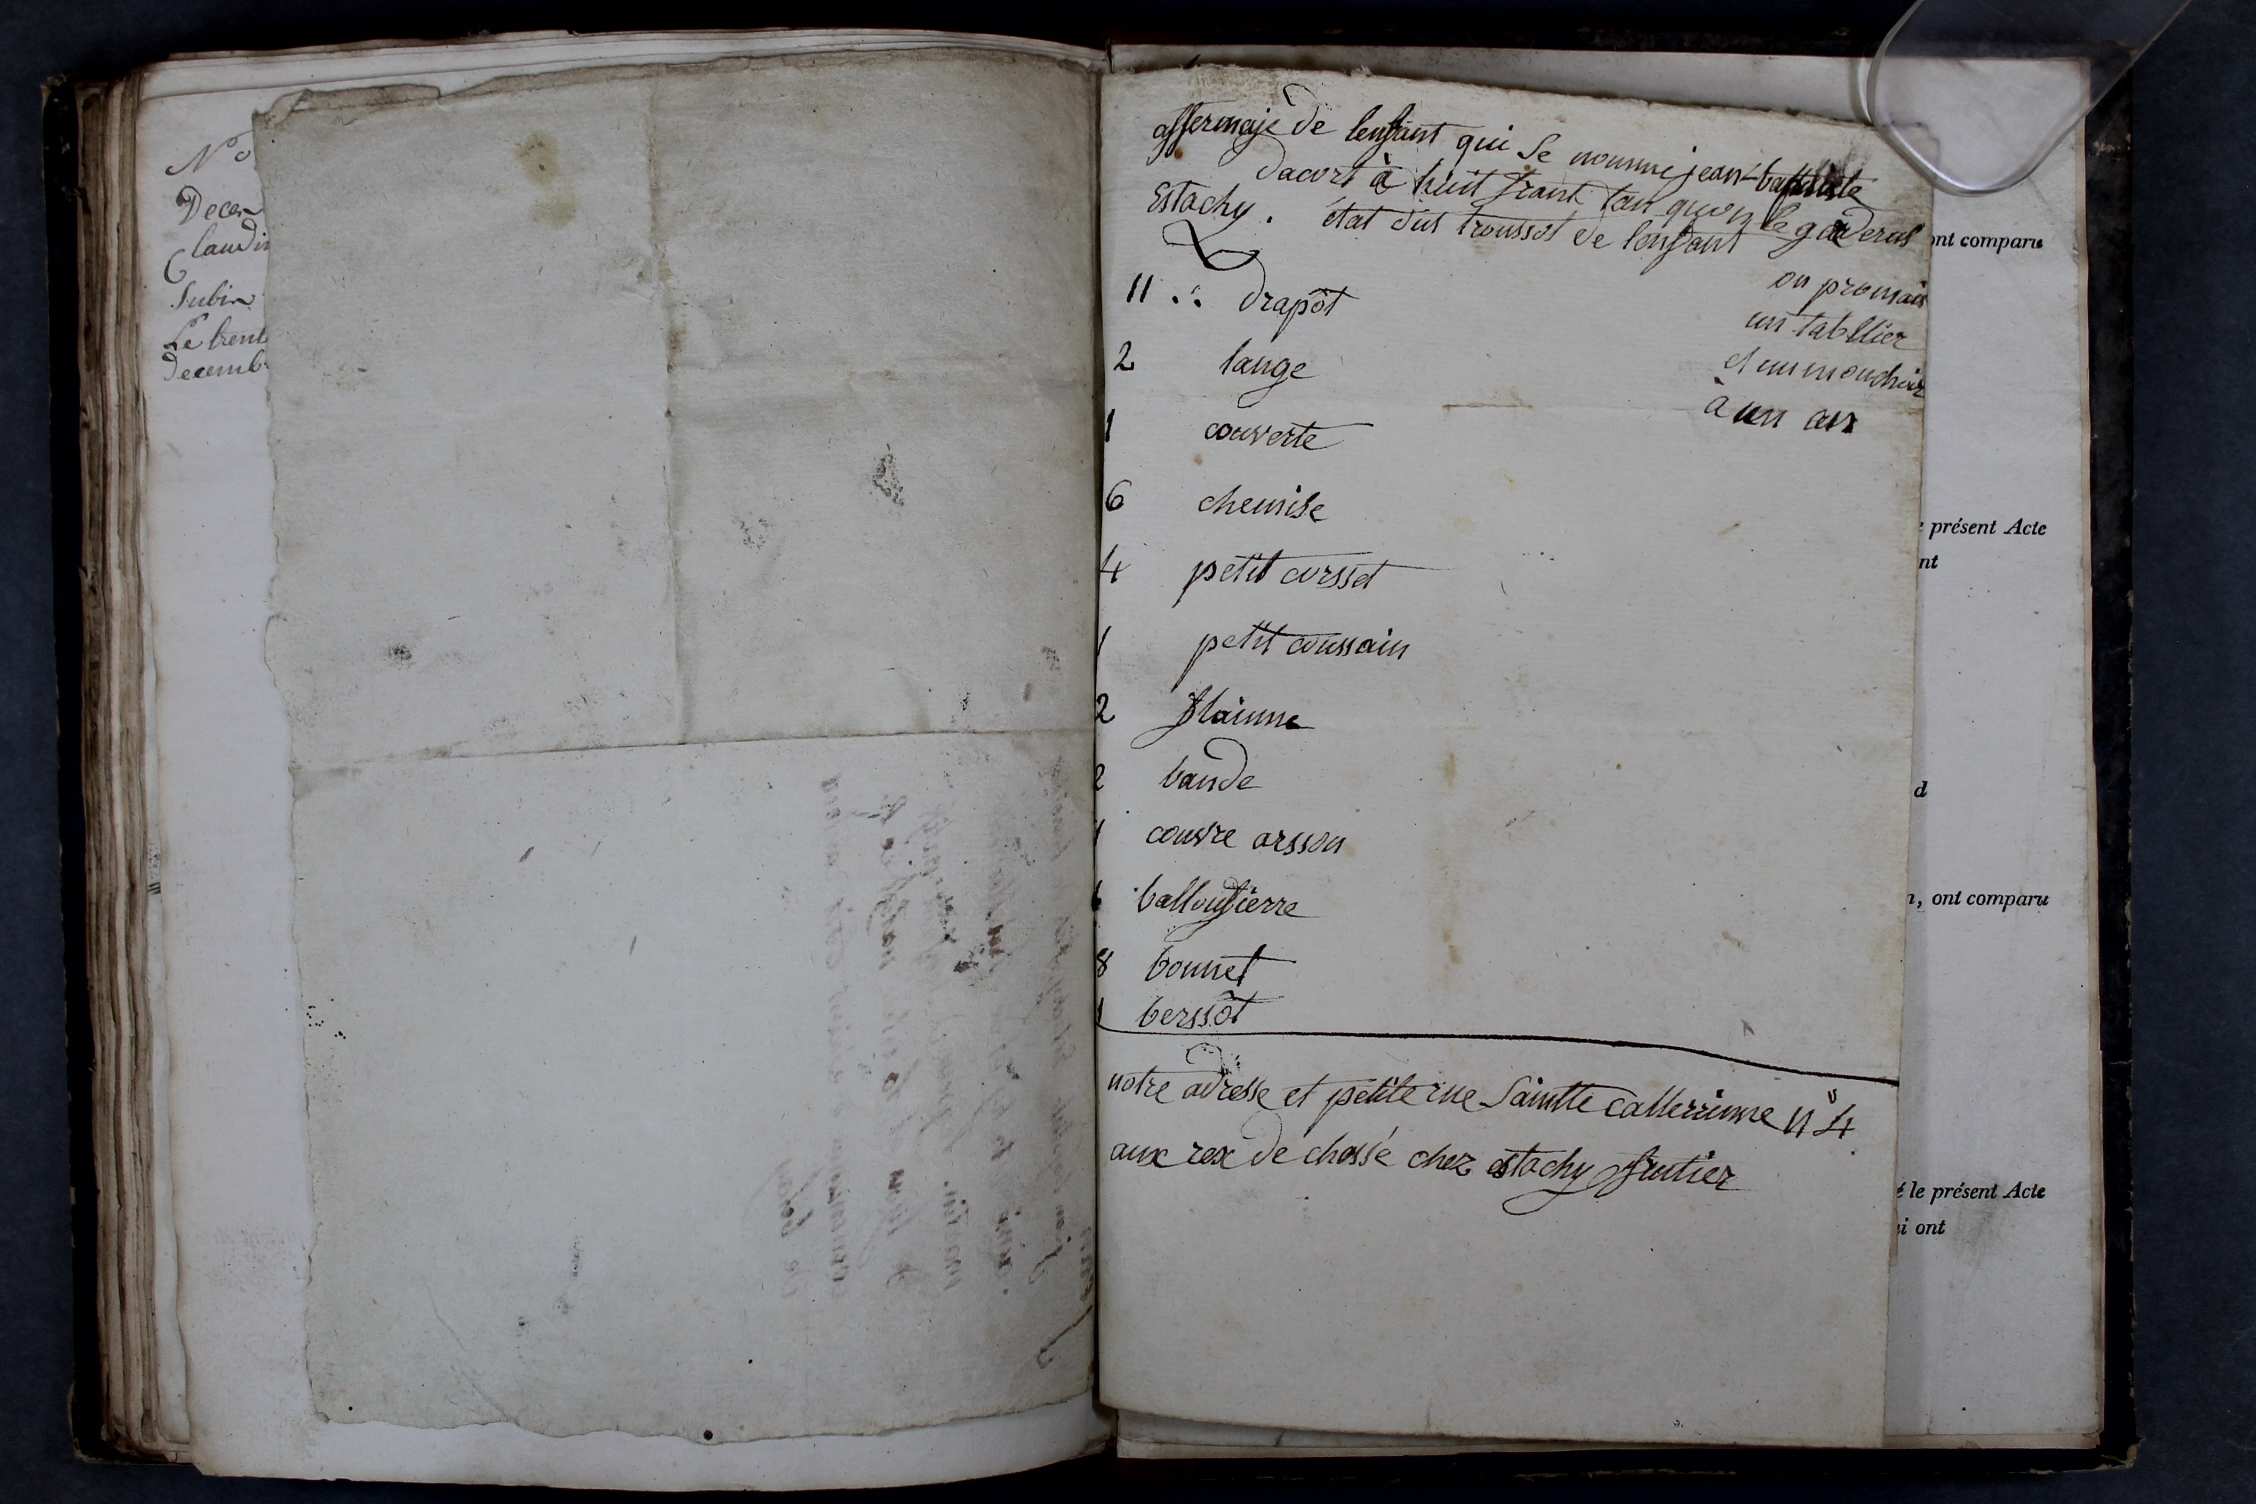 N°
Decem
Claudi
Subin
Le trent
decemb
affermaje de lenfant qui se nomme jean-battiste
dacort à huit frant tan quon le garderas
Estachy. état dus troussot de lenfant
on promais
un tabllier
et un mouchoir
à un an
11 drapôt
2 lange
1 couverte
6 chemise
4 petit corsset
1 petit coussain
2 flainne
2 bande
1 couvre arsson
6 balloufierre
8 bonnet
1 berssôt
notre adresse et petite rue Saintte Catterrinne n° 4
aux rex de chossé chez estachy fruttier
ont comparu
présent Acte
nt
d
n, ont comparu
é le présent Acte
i ont